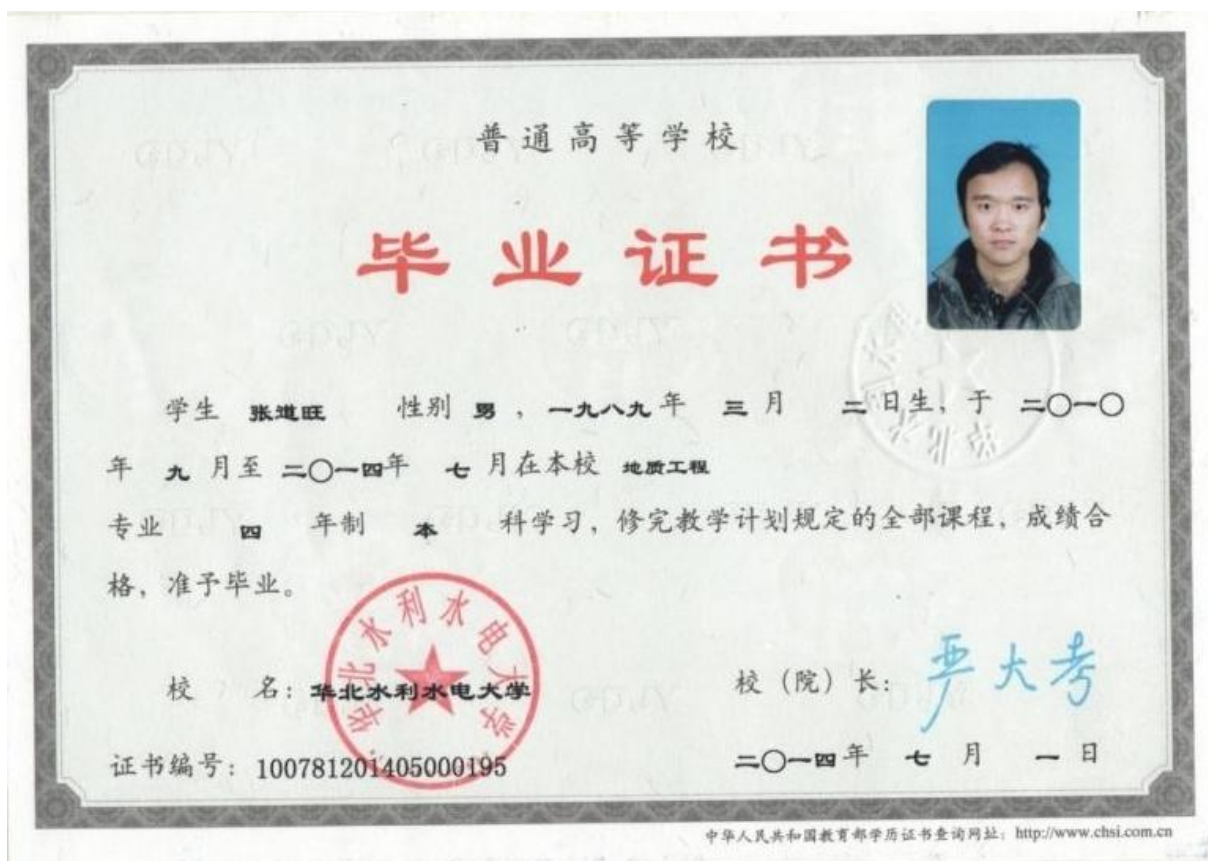 普通高等学校
毕业证书
学生 张道旺 性别 男 ，一九八九年 三月 二日生，于 二〇一〇
年 九 月至 二〇一四年 七 月在本校 地质工程
专业 四 年制 本 科学习，修完教学计划规定的全部课程，成绩合
格，准予毕业。
华北水利水电大学
校 名：华北水利水电大学
校（院）长：严大考
证书编号：100781201405000195
二〇一四年 七 月 一 日
中华人民共和国教育部学历证书查询网址：http://www.chsi.com.cn